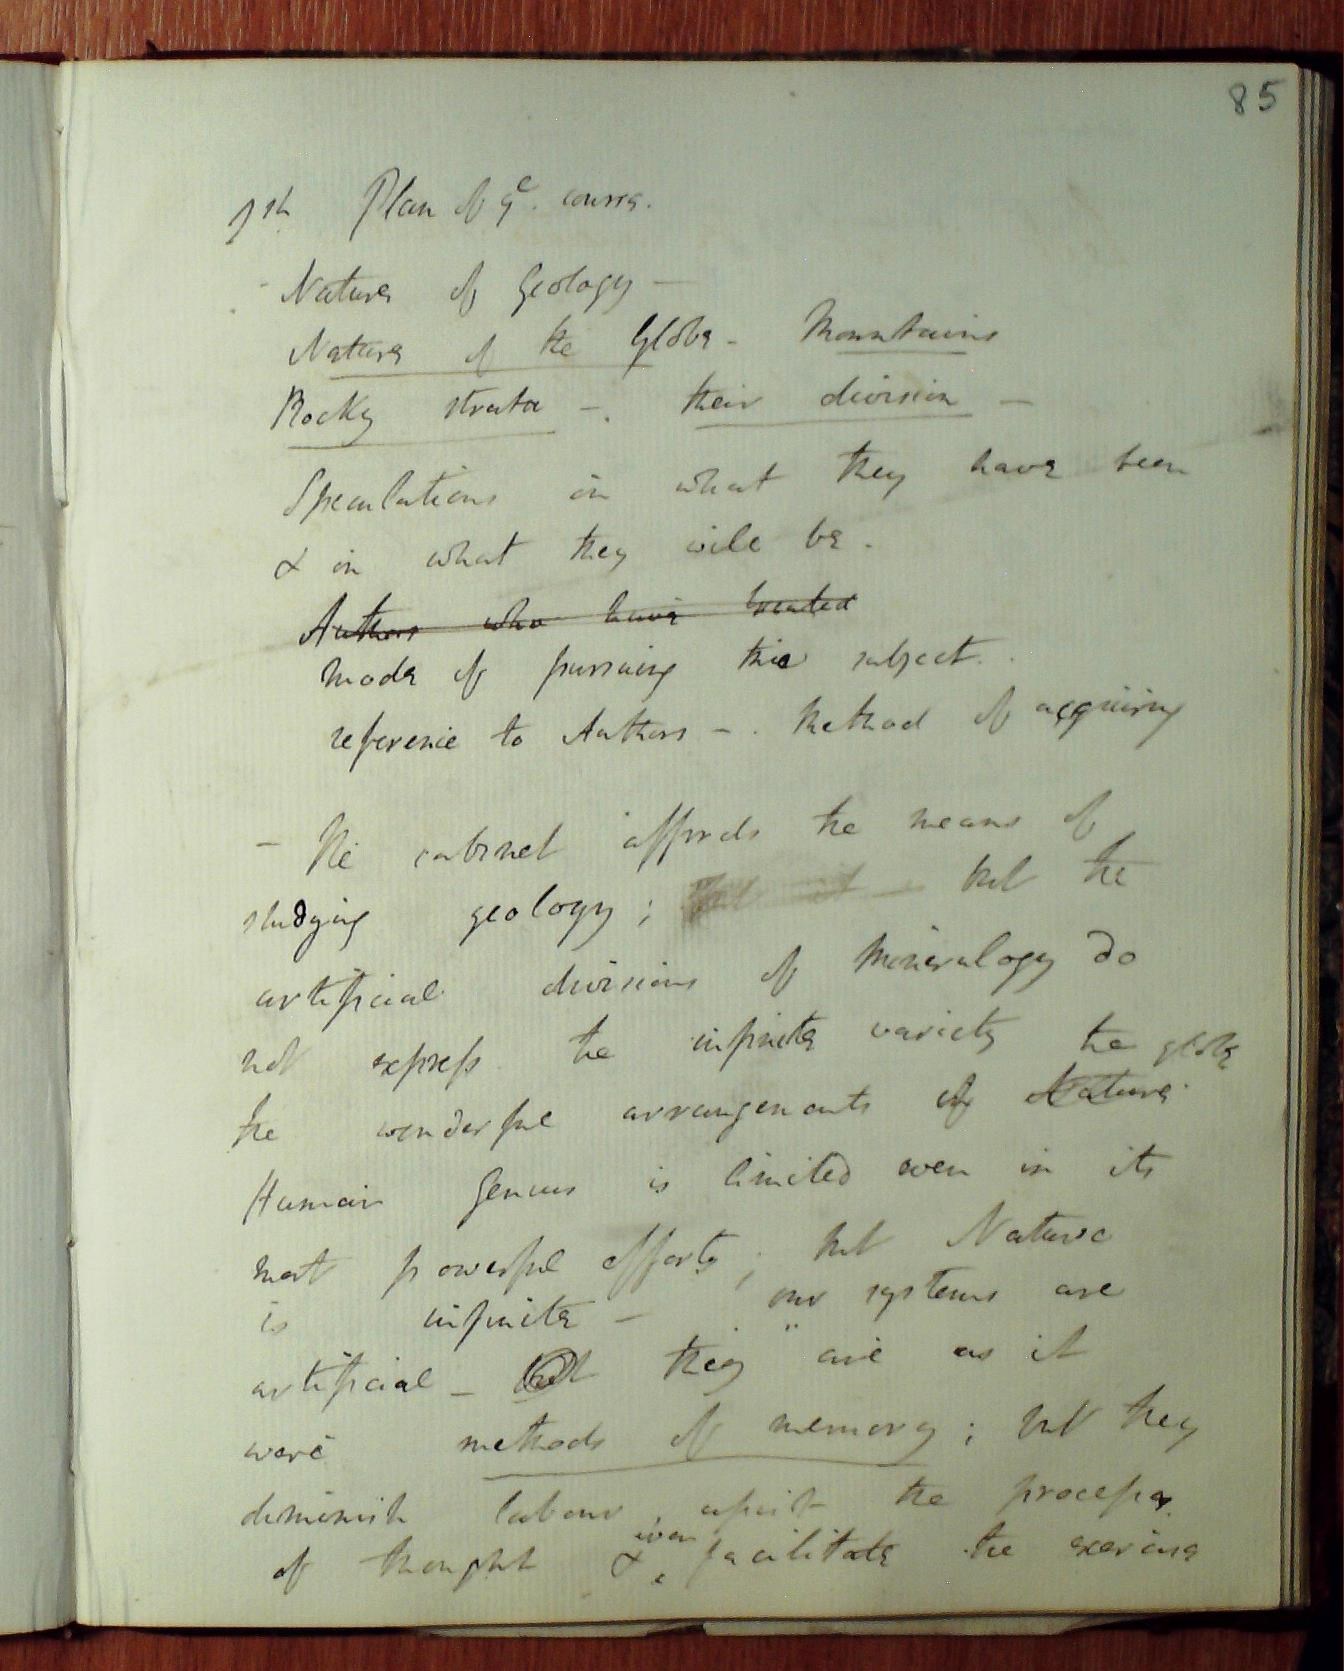 85
1st Plan of ye. course.
- Nature of Geology -
Nature of the Globe - Mountains
Rocky strata - their division -
Speculations on what they have been
& on what they will be.
Authors who have treated
Mode of pursuing the subject.
reference to Authors - . Method of acquiring
- The cabinet affords the means of
studying geology; but the
artificial divisions of Mineralogy do
not express the infinite variety the globe
the wonderful arrangements of Nature.
Human Genius is limited even in its
most powerful efforts; but Nature
is infinite - our systems are
artificial - they are as it
were methods of memory; but they
diminish labour, assist the process
of thought & even facilitate the exercise